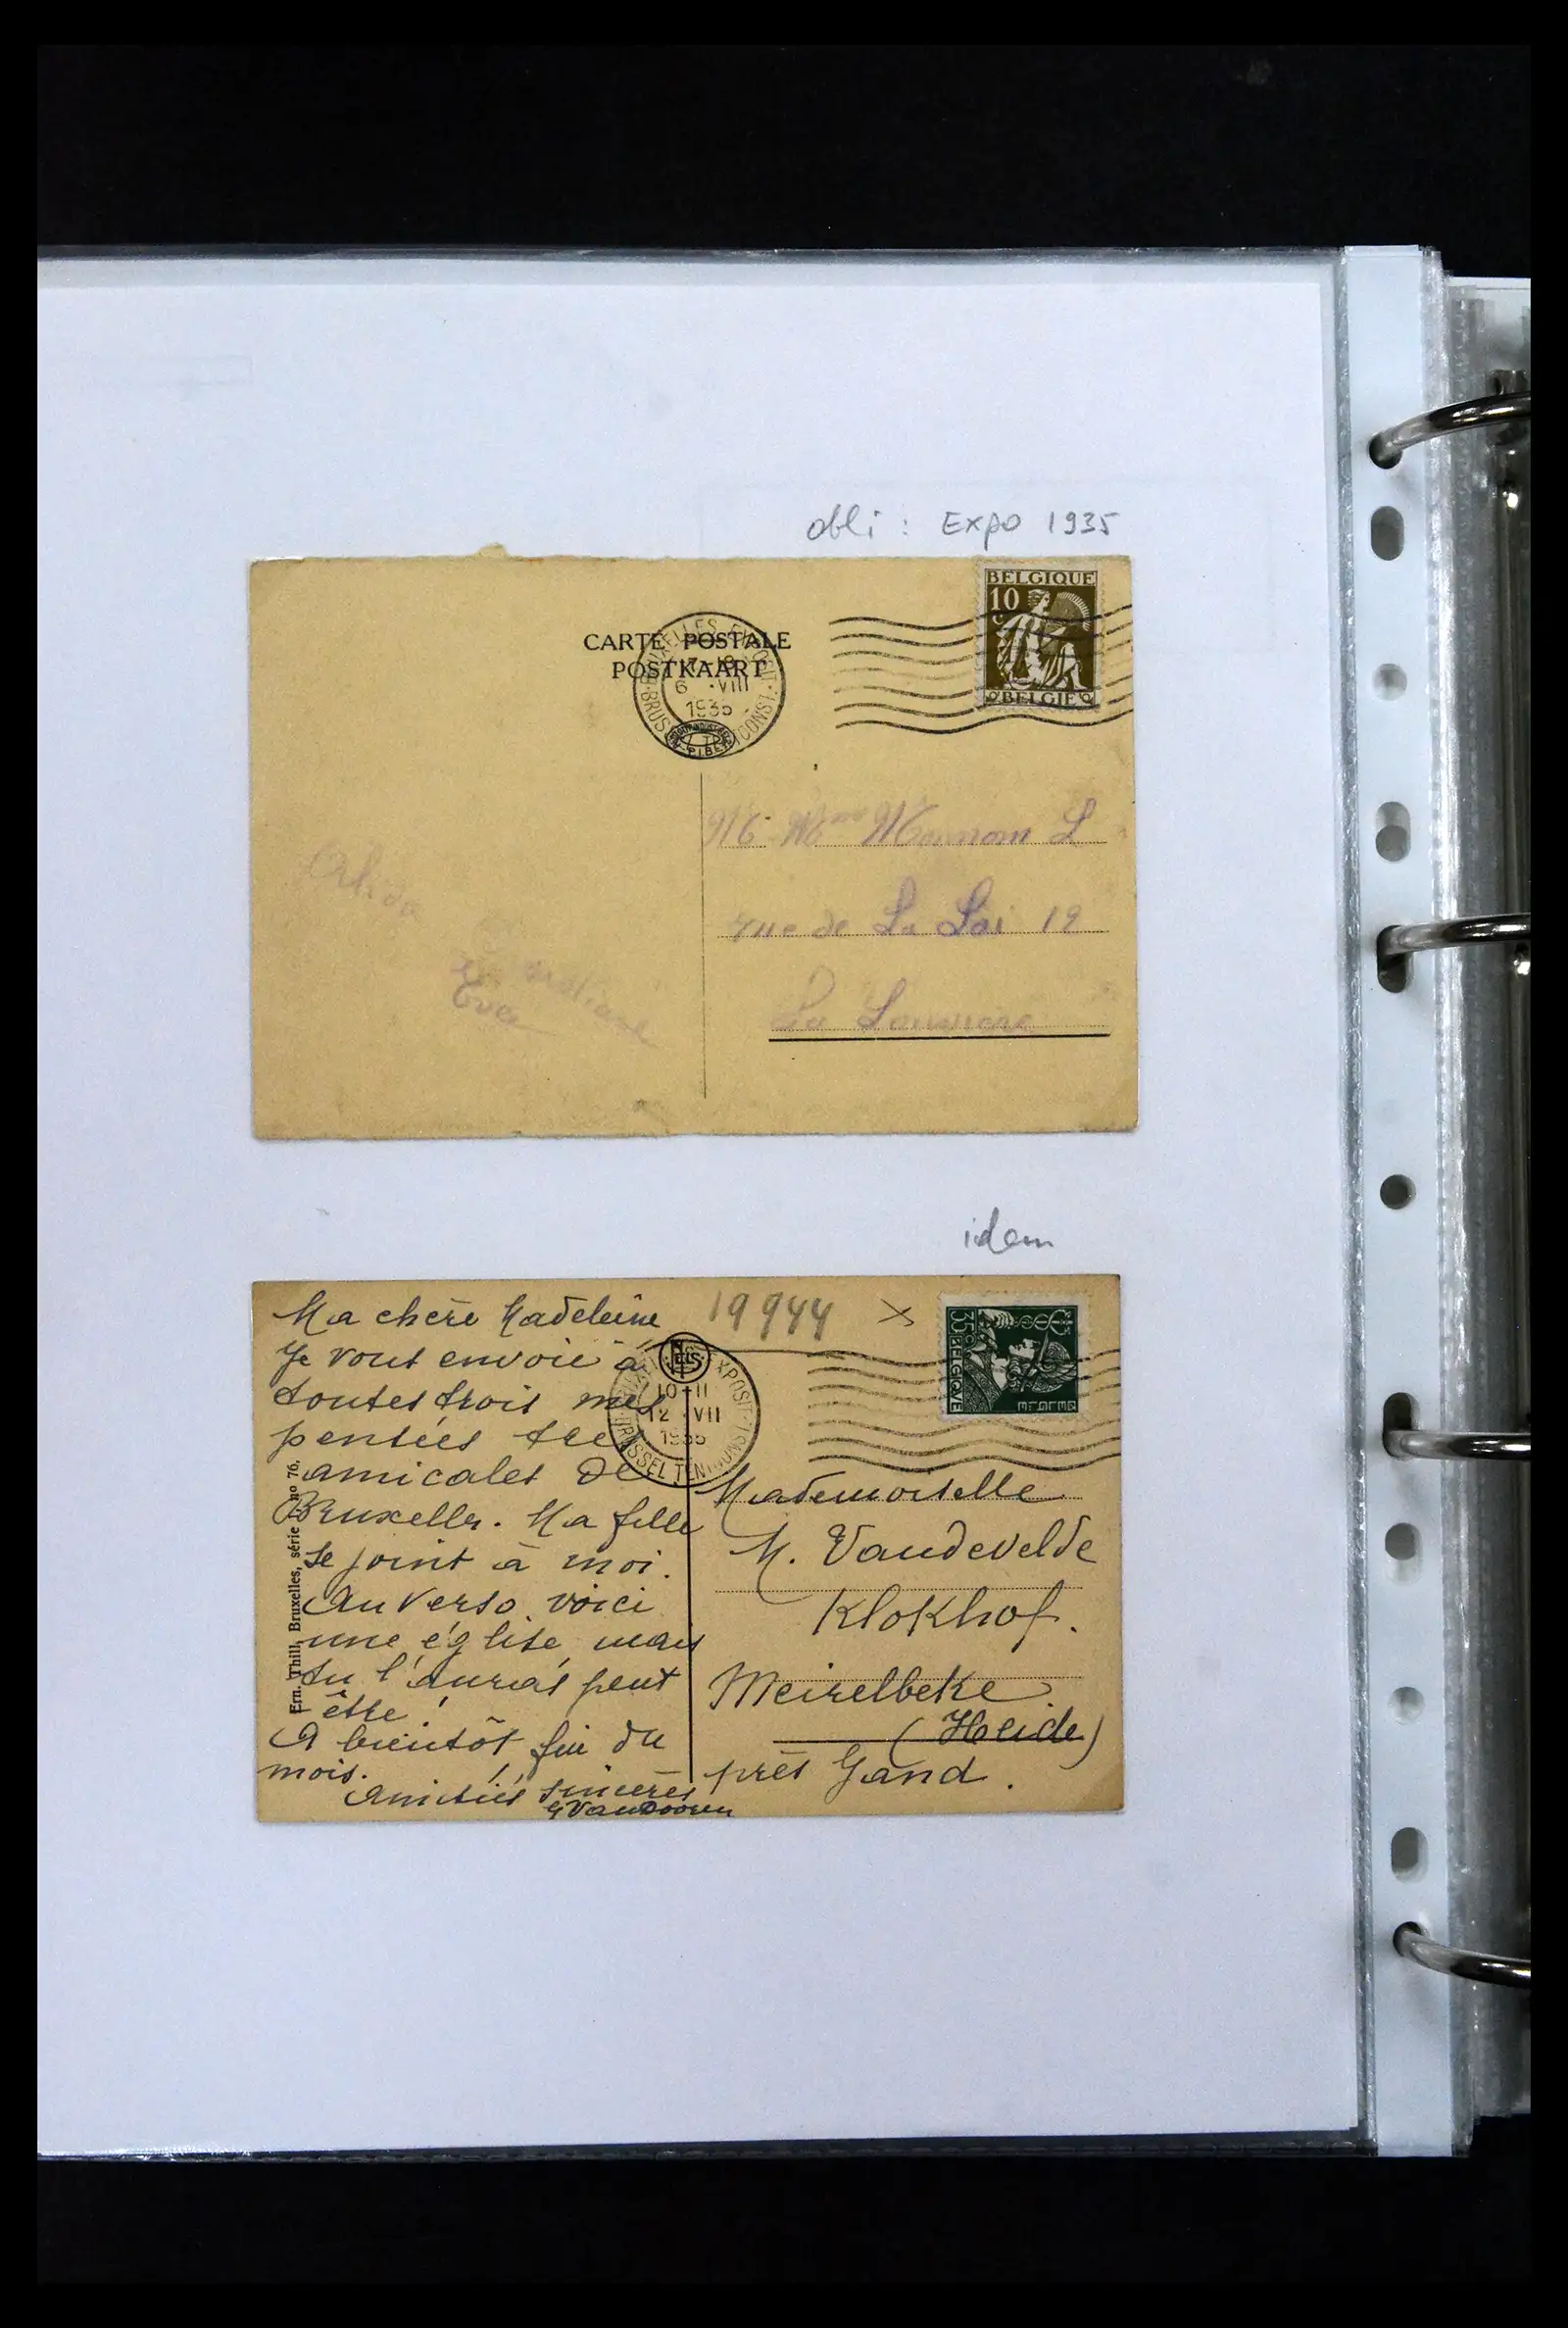 obli : Expo 1935
BELGIQUE
10
BELGIE
CARTE POSTALE
POSTKAART
6 VIII
1935
rue de La Loi 19
La Louviere
Eva
idem
19944 X
35
BELGIQVE
BELGIE
ELS
EXPOSIT.
10-11
12 VII
1935
BRUSSEL
Ma chère Madeleine
Je vous envoie à
toutes trois mes
pensées très
amicales de
Bruxelles. Ma fille
se joint à moi.
Au verso voici
une église, mais
tu l'auras peut
être !
A bientôt fin du
mois.
Amitiés sincères
G VanDooren
Ern. Thill, Bruxelles, série no 76.
Mademoiselle
M. Vandevelde
Klokhof.
Meirelbeke
(Heide)
près Gand.